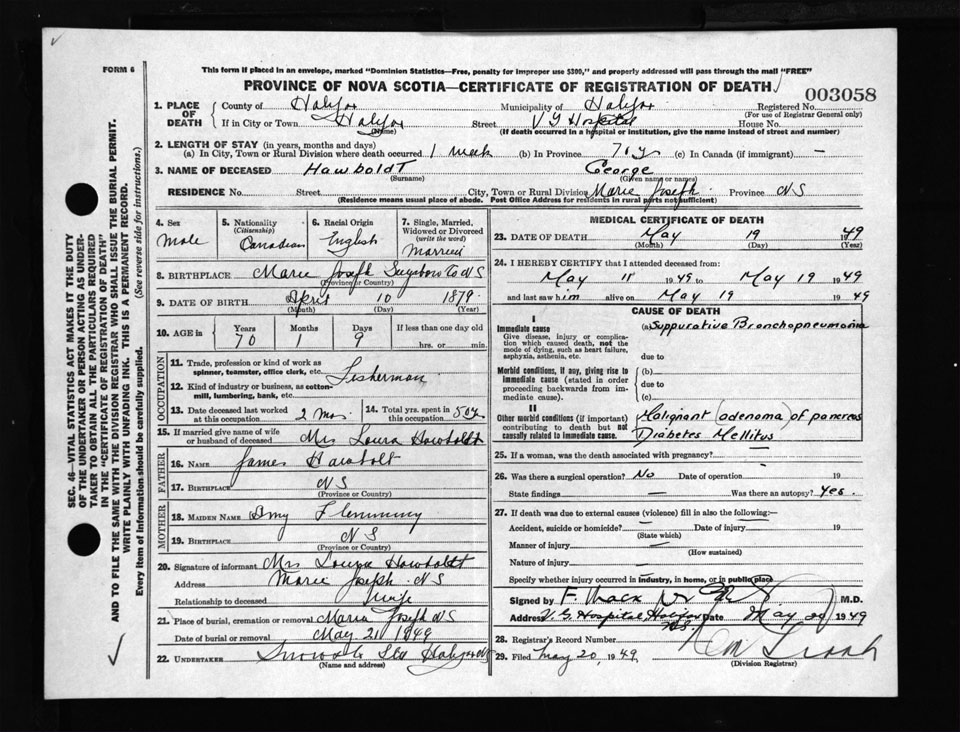 FORM 6
This form if placed in an envelope, marked "Dominion Statistics—Free, penalty for improper use $300," and properly addressed will pass through the mail "FREE"
PROVINCE OF NOVA SCOTIA—CERTIFICATE OF REGISTRATION OF DEATH
003058
1. PLACE OF DEATH
County of Halifax Municipality of Halifax Registered No.
(For use of Registrar General only)
If in City or Town Halifax Street V G Hospital House No.
(Name) (If death occurred in a hospital or institution, give the name instead of street and number)
2. LENGTH OF STAY (in years, months and days)
(a) In City, Town or Rural Division where death occurred 1 week (b) In Province 70 y (c) In Canada (if immigrant) —
3. NAME OF DECEASED Hawboldt George
(Surname) (Given name or names)
RESIDENCE No. Street City, Town or Rural Division Marie Joseph Province NS
(Residence means usual place of abode. Post Office Address for residents in rural parts not sufficient)
4. Sex Male
5. Nationality (Citizenship) Canadian
6. Racial Origin English
7. Single, Married, Widowed or Divorced (write the word) Married
8. BIRTHPLACE Marie Joseph Guysboro Co NS
(Province or Country)
9. DATE OF BIRTH April 10 1879
(Month) (Day) (Year)
10. AGE in Years 70 Months 1 Days 9 If less than one day old hrs. or min.
OCCUPATION
11. Trade, profession or kind of work as spinner, teamster, office clerk, etc. Fisherman
12. Kind of industry or business, as cotton-mill, lumbering, bank, etc.
13. Date deceased last worked at this occupation 2 mos.
14. Total yrs. spent in this occupation 50 y
15. If married give name of wife or husband of deceased Mrs Laura Hawboldt
FATHER
16. NAME James Hawbolt
17. BIRTHPLACE NS
(Province or Country)
MOTHER
18. MAIDEN NAME Amy Flemming
19. BIRTHPLACE NS
(Province or Country)
20. Signature of informant Mrs Laura Hawboldt
Address Marie Joseph NS
Relationship to deceased Wife
21. Place of burial, cremation or removal Marie Joseph NS
Date of burial or removal May 21 1949
22. UNDERTAKER Snows Ltd Halifax NS
(Name and address)
MEDICAL CERTIFICATE OF DEATH
23. DATE OF DEATH May 19 1949
(Month) (Day) (Year)
24. I HEREBY CERTIFY that I attended deceased from:
May 11 1949 to May 19 1949
and last saw him alive on May 19 1949
CAUSE OF DEATH
I
Immediate cause
Give disease, injury or complication which caused death, not the mode of dying, such as heart failure, asphyxia, asthenia, etc.
(a) Suppurative Bronchopneumonia
due to
Morbid conditions, if any, giving rise to immediate cause (stated in order proceeding backwards from immediate cause).
(b)
due to
(c)
II
Other morbid conditions (if important) contributing to death but not causally related to immediate cause.
Malignant (adenoma) of pancreas
Diabetes Mellitus
25. If a woman, was the death associated with pregnancy? —
26. Was there a surgical operation? No Date of operation 19
State findings — Was there an autopsy? Yes.
27. If death was due to external causes (violence) fill in also the following:—
Accident, suicide or homicide? — Date of injury 19
(State which)
Manner of injury —
(How sustained)
Nature of injury —
Specify whether injury occurred in industry, in home, or in public place
Signed by F. Mack M.D.
Address V. G. Hospital, Halifax N.S. Date May 20 1949
28. Registrar's Record Number
29. Filed May 20, 1949
(Division Registrar)
SEC. 46—VITAL STATISTICS ACT MAKES IT THE DUTY
OF THE UNDERTAKER OR PERSON ACTING AS UNDER-
TAKER TO OBTAIN ALL THE PARTICULARS REQUIRED
IN THE "CERTIFICATE OF REGISTRATION OF DEATH"
AND TO FILE THE SAME WITH THE DIVISION REGISTRAR WHO SHALL ISSUE THE BURIAL PERMIT.
WRITE PLAINLY WITH UNFADING INK. THIS IS A PERMANENT RECORD.
Every item of information should be carefully supplied. (See reverse side for instructions.)